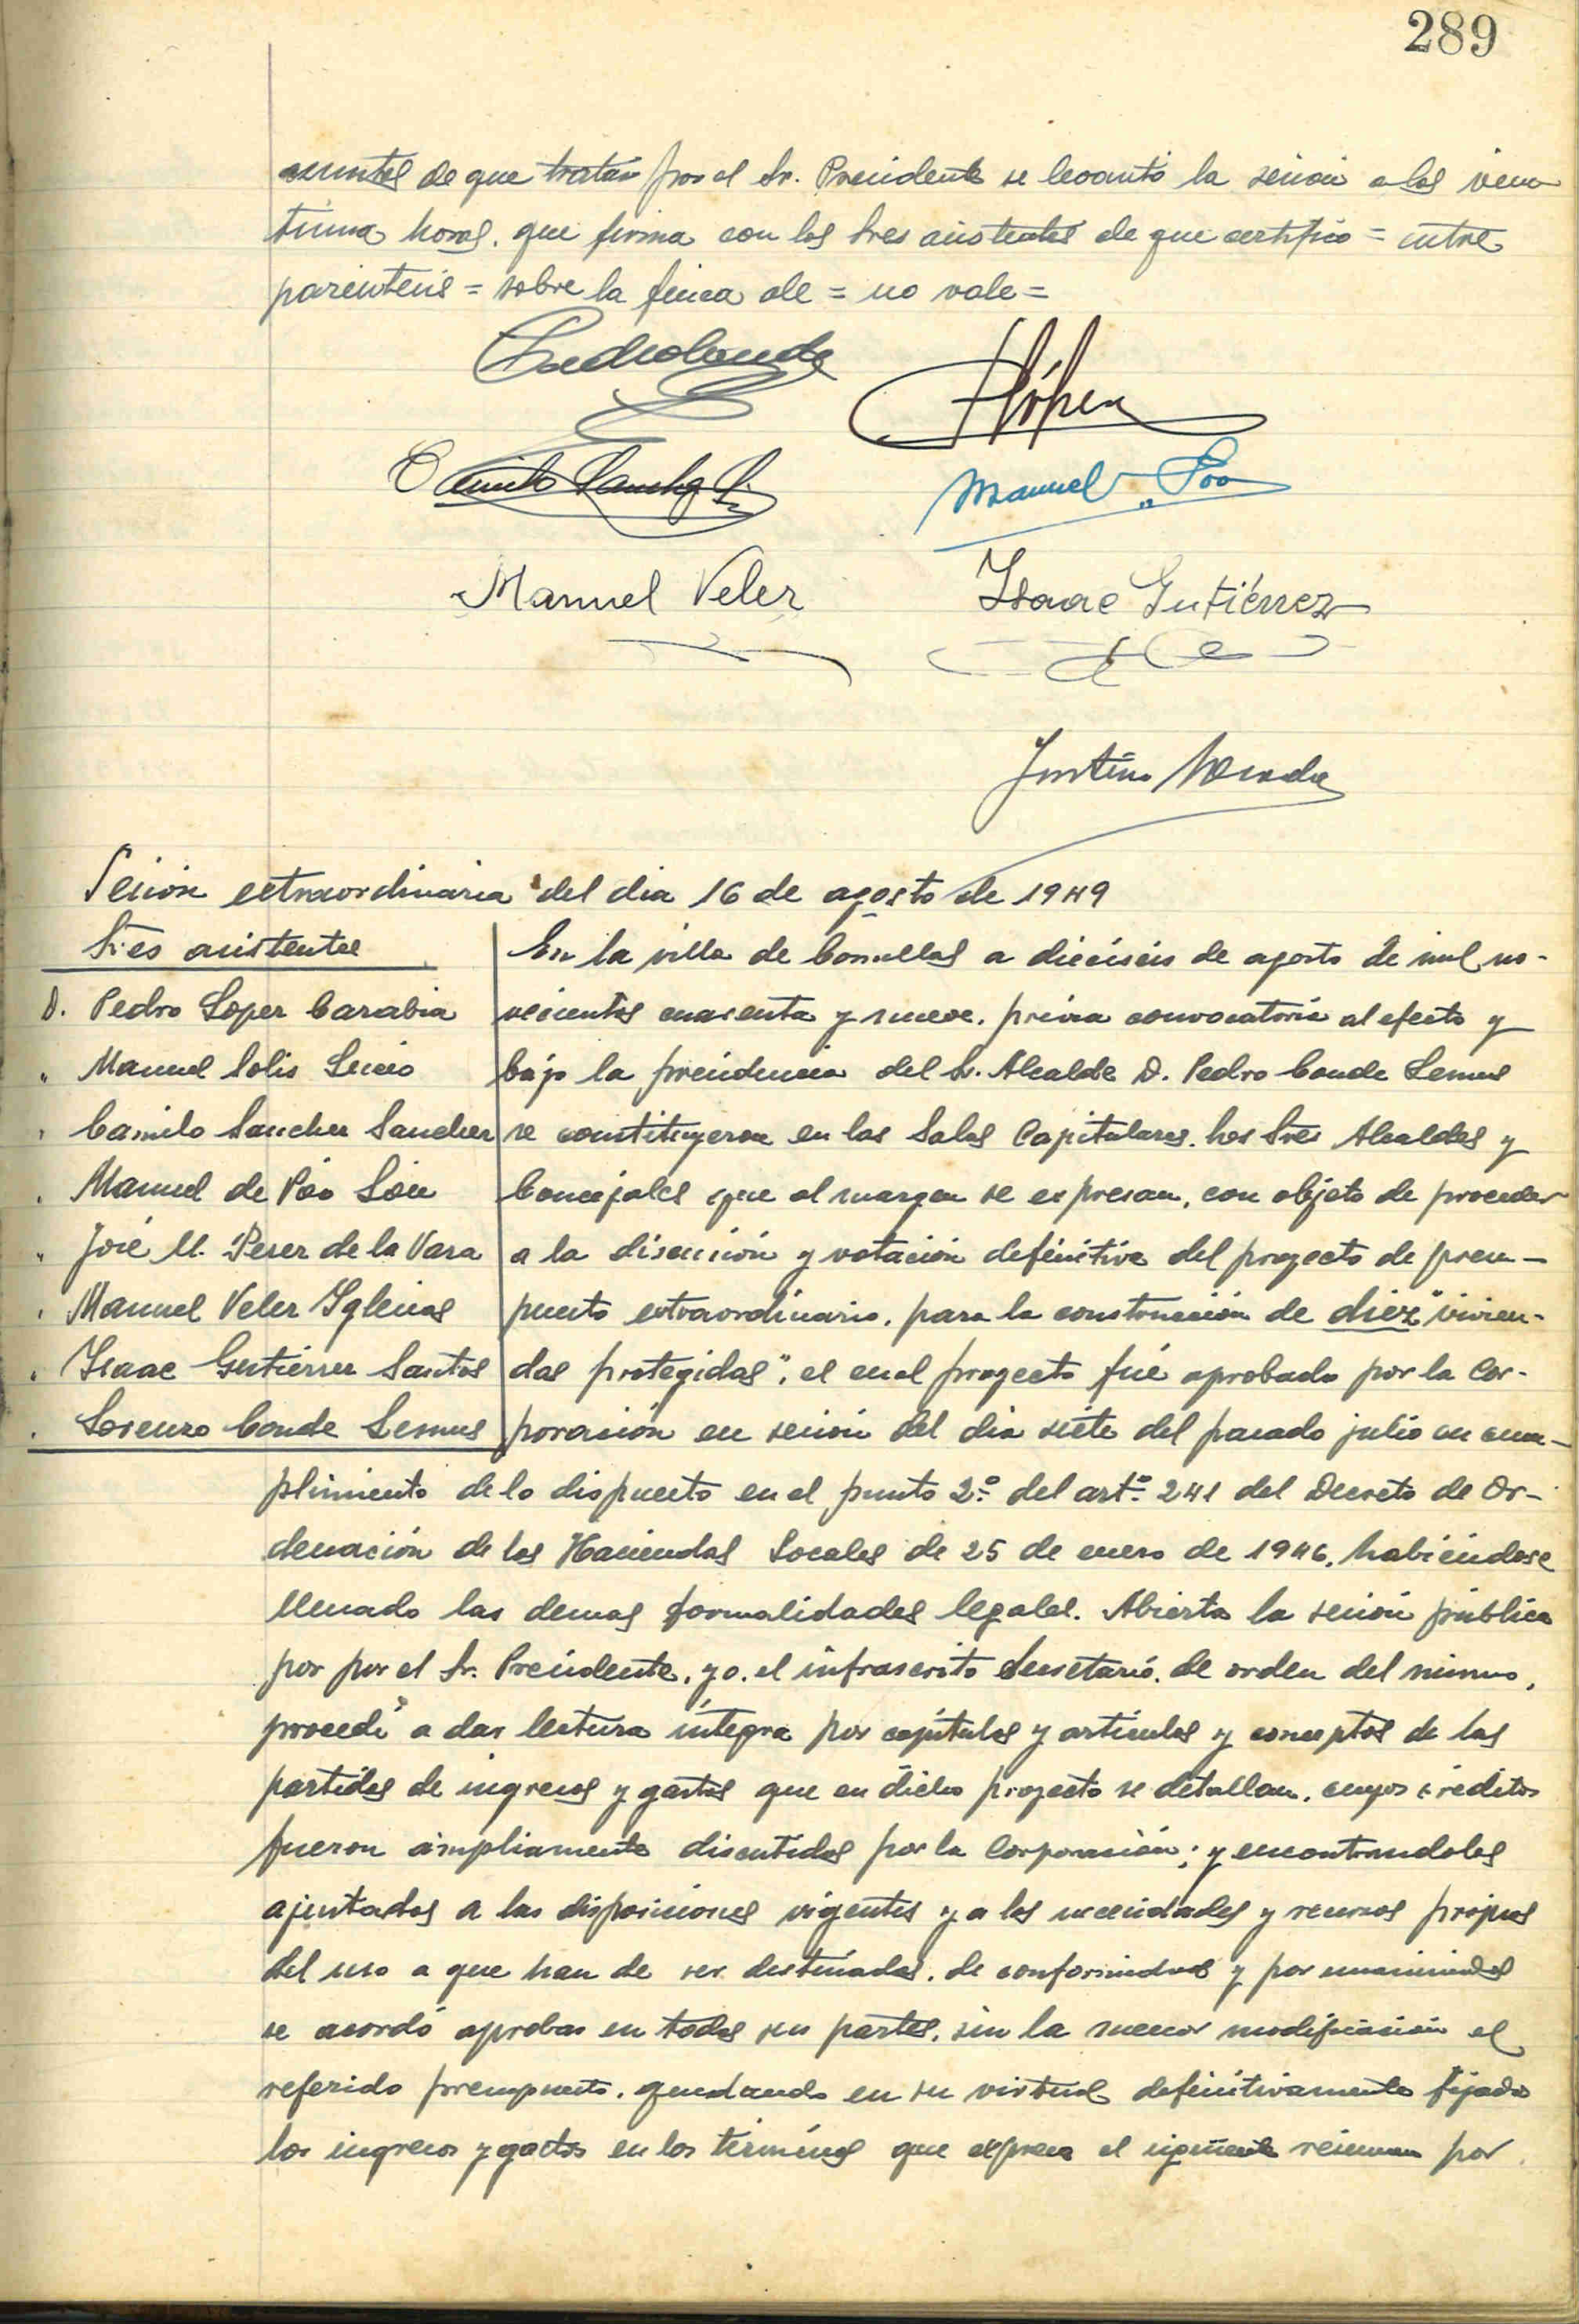 289
asuntos de que tratar por el Sr. Presidente se levantó la sesión a las vein
tiuna horas, que firma con los Sres asistentes de que certifico = entre
parentesis = sobre la finca de = no vale =
Pedro Conde
P López
Camilo Sanchez S.
Manuel Poo
Manuel Velez
Isaac Gutiérrez
Justino
Sesión extraordinaria del dia 16 de agosto de 1949
Sres asistentes
D. Pedro Lopez Carabia
" Manuel Solis
" Camilo Sanchez Sanchez
" Manuel de Póo
" José M. Perez de la Vara
" Manuel Velez Iglesias
" Isaac Gutierrez Santos
" Lorenzo Conde Lemus
En la villa de Comillas a dieciseis de agosto de mil no-
vecientos cuarenta y nueve, previa convocatoria al efecto y
bajo la presidencia del Sr. Alcalde D. Pedro Conde Lemus
se constituyeron en las Salas Capitulares. los Sres Alcaldes y
Concejales que al margen se expresan, con objeto de proceder
a la discusión y votación definitiva del proyecto de presu-
puesto extraordinario, para la construcción de diez "vivien-
das protegidas", el cual proyecto fué aprobado por la Cor-
poración en sesión del dia siete del pasado julio en cum-
plimiento de lo dispuesto en el punto 2º del artº 241 del Decreto de Or-
denación de las Haciendas Locales de 25 de enero de 1946, habiéndose
llenado las demas formalidades legales. Abierta la sesión pública
por por el Sr. Presidente, yo, el infrascrito Secretario, de orden del mismo,
procedí a dar lectura íntegra por capítulos y artículos y conceptos de las
partidas de ingresos y gastos que en dicho proyecto se detallan, cuyos créditos
fueron ampliamente discutidos por la Corporación; y encontrandolos
ajustados a las disposiciones vigentes y a las necesidades y recursos propios
del uso a que han de ser destinados, de conformidad y por unanimidad
se acordó aprobar en todas sus partes, sin la menor modificación el
referido presupuesto, quedando en su virtud definitivamente fijado
los ingresos y gastos en los términos que expresa el siguiente resumen por